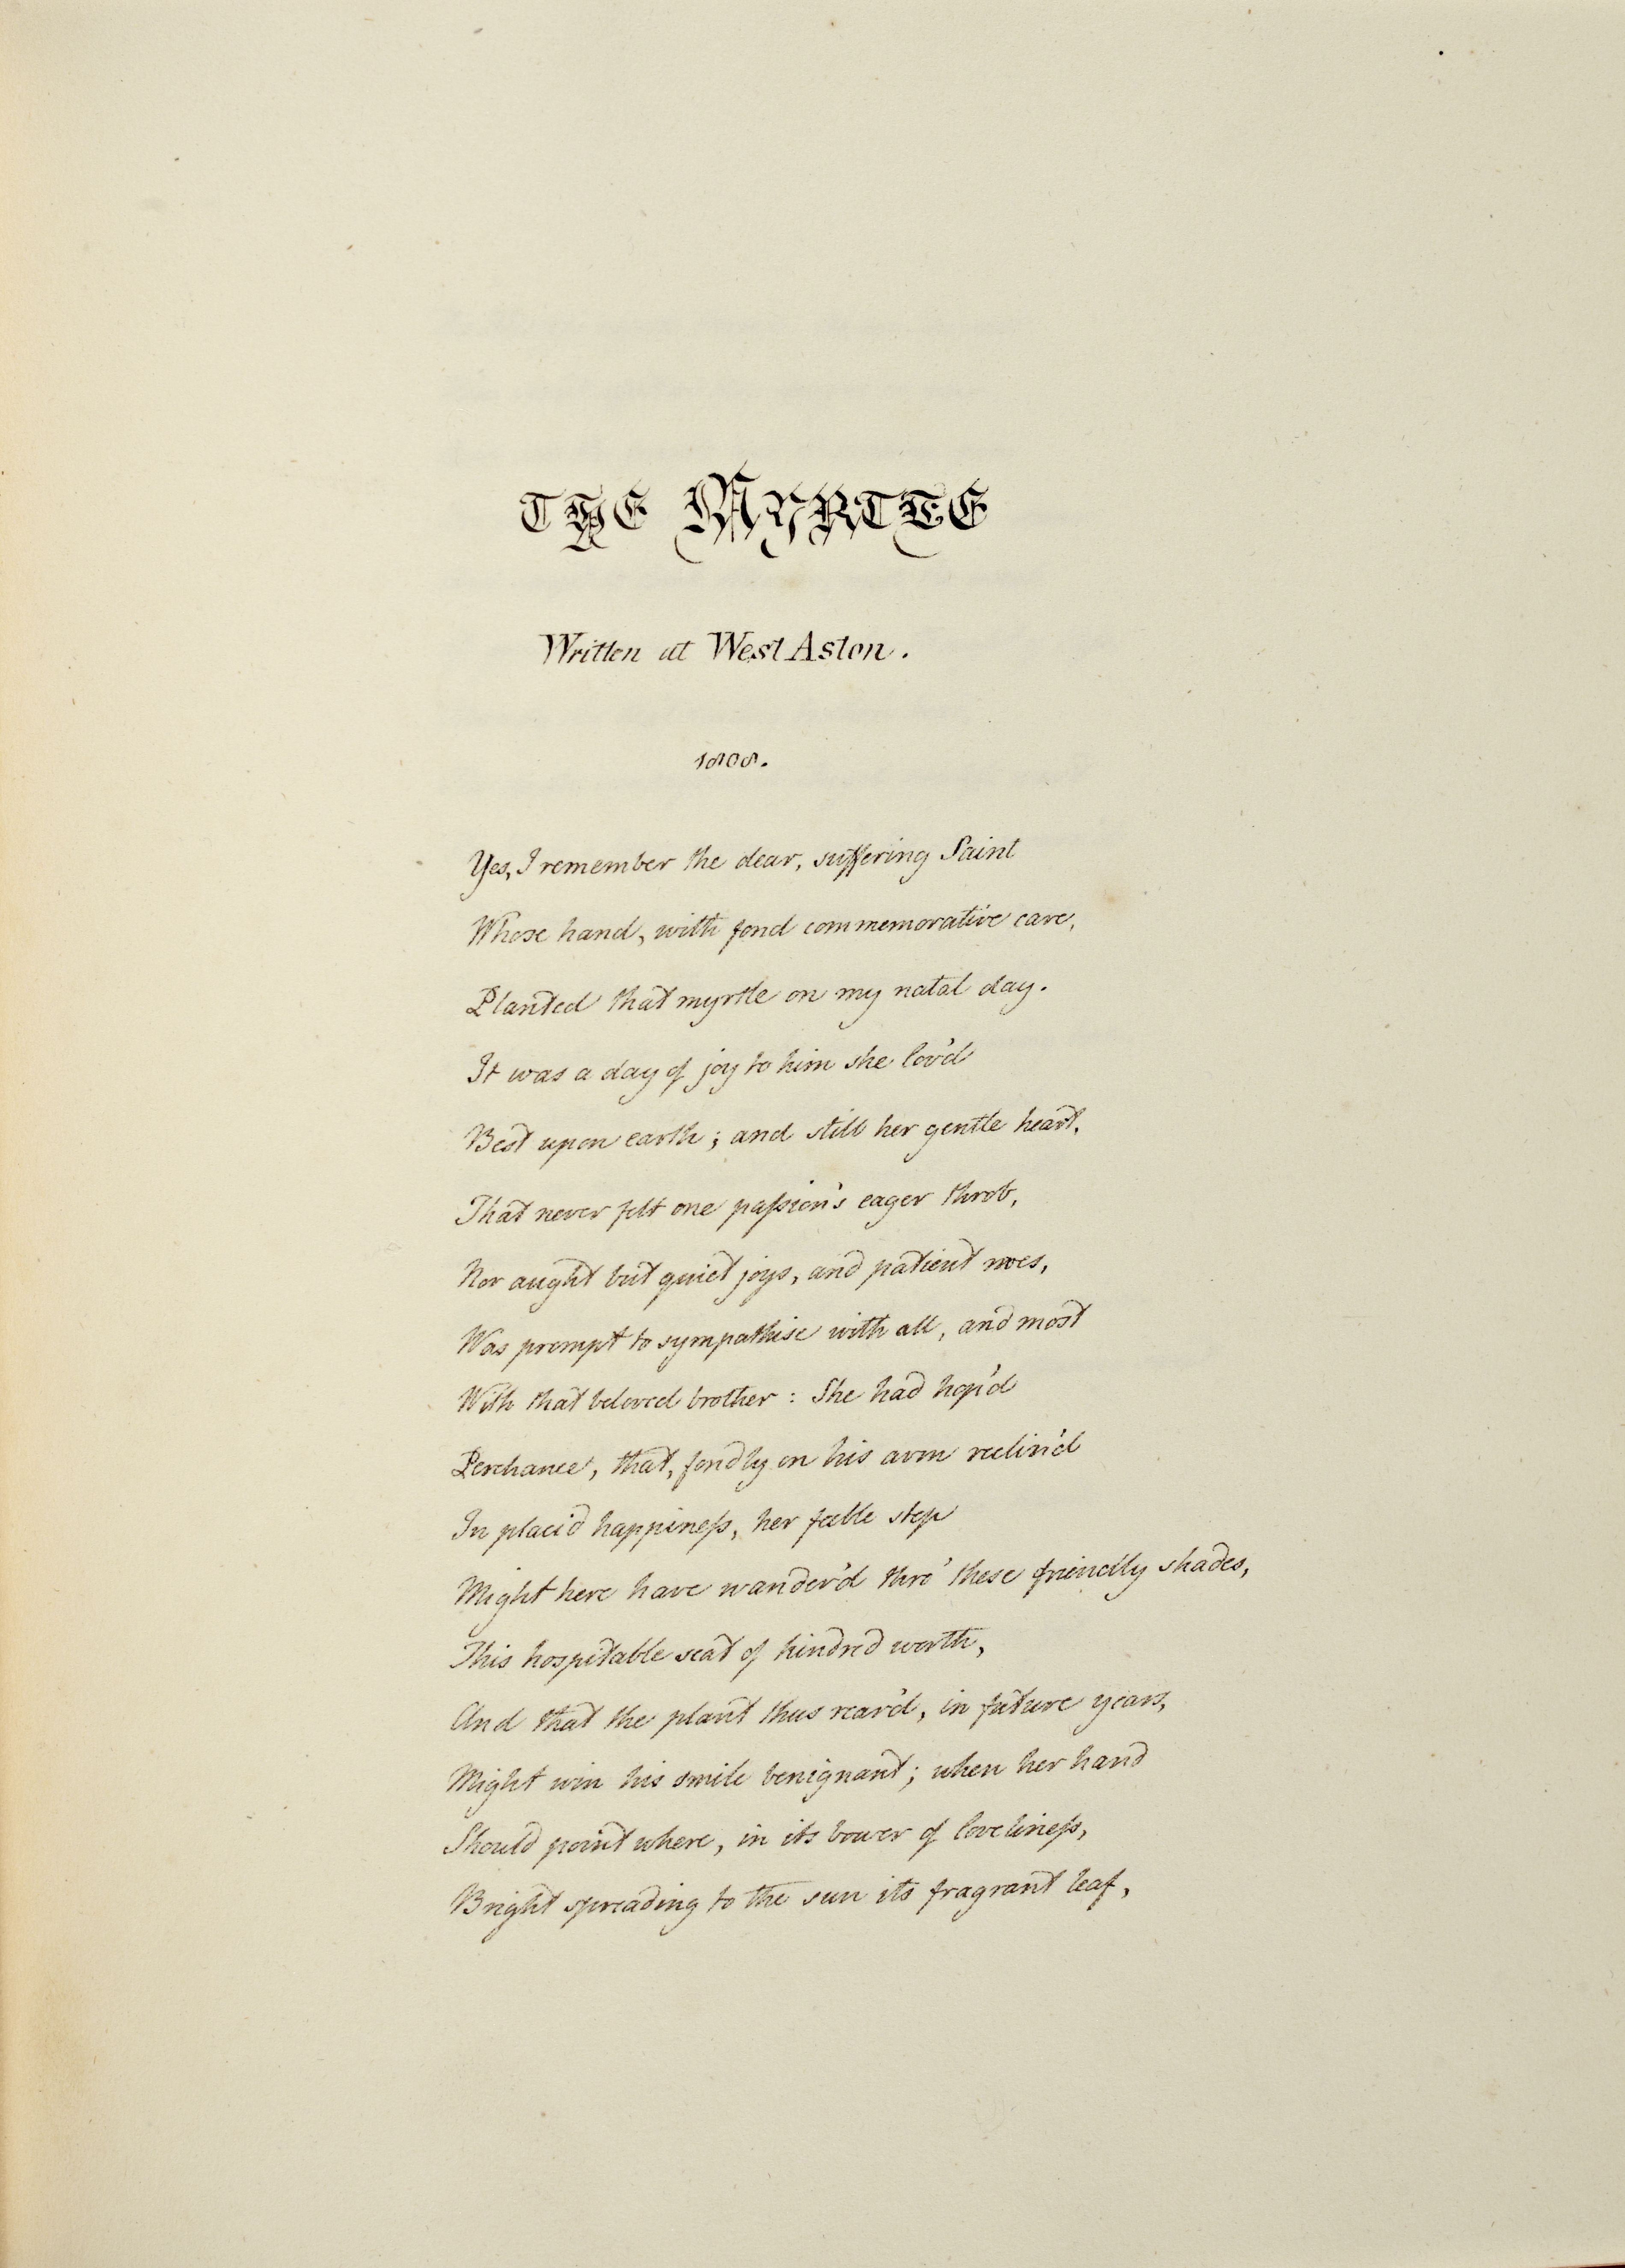 THE MYRTLE
Written at West Aston.
1808.
Yes, I remember the dear, suffering Saint
Whose hand, with fond commemorative care,
Planted that myrtle on my natal day.
It was a day of joy to him she lov'd
Best upon earth; and still her gentle heart,
That never felt one paſsion's eager throb,
Nor aught but quiet joys, and patient woes,
Was prompt to sympathise with all, and most
With that beloved brother: She had hop'd
Perchance, that, fondly on his arm reclin'd
In placid happineſs, her feeble step
Might here have wander'd thro' these friendly shades,
This hospitable seat of kindred worth,
And that the plant thus rear'd, in future years,
Might win his smile benignant; when her hand
Should point where, in its bower of lovelineſs,
Bright spreading to the sun its fragrant leaf,